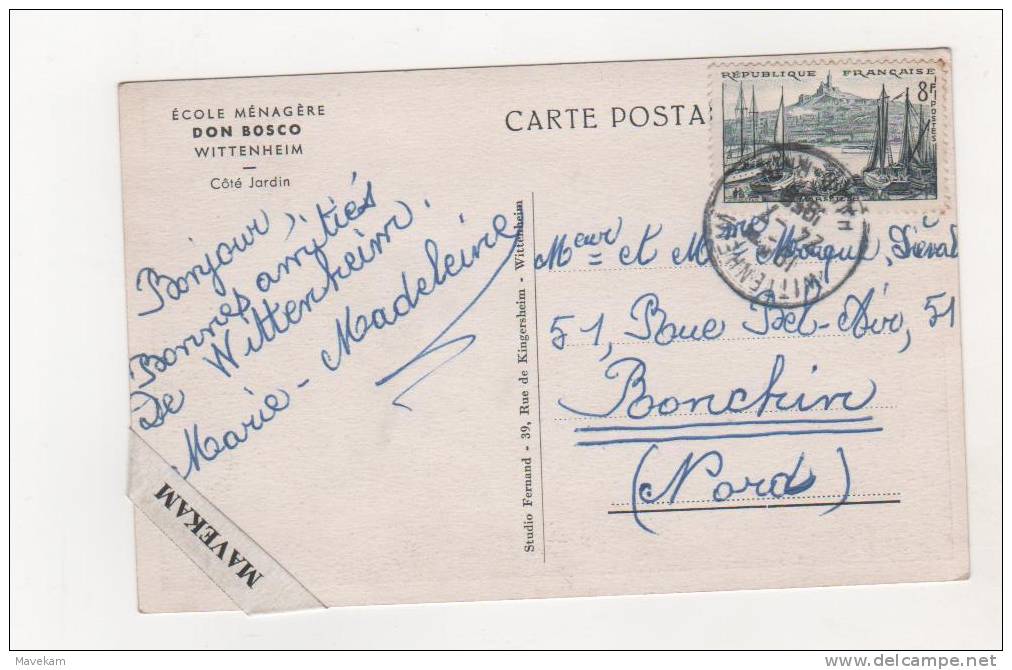 ÉCOLE MÉNAGÈRE
DON BOSCO
WITTENHEIM
Côté Jardin
CARTE POSTA
RÉPUBLIQUE FRANÇAISE
8F
POSTES
MARSEILLE
WITTENHEIM
Bonjour,
Bonnes amitiés
De Wittenheim.
Marie-Madeleine
Studio Fernand - 39, Rue de Kingersheim - Wittenheim
Meur et Mme
51, Rue Bel-Air, 51
Ronchin
(Nord)
MAVEKAM
Mavekam
delcampe.net